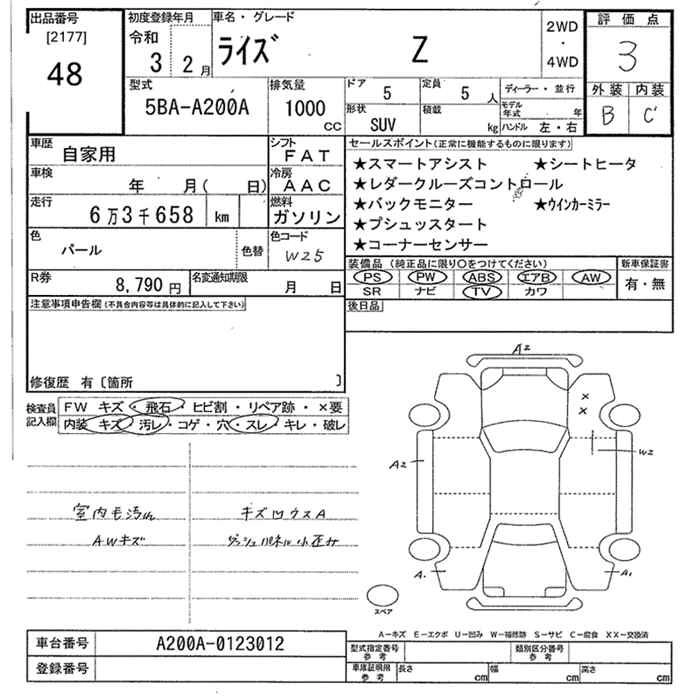 出品番号
[2177]
48
初度登録年月
令和
3 2月
車名・グレード
ライズ Z
2WD
・
4WD
評価点
3
外装 内装
B C
型式
5BA-A200A
排気量
1000
CC
ドア 5
定員 5 人
ディーラー・並行
形状 SUV
積載 kg
モデル年式 年
ハンドル 左・右
車歴 自家用
シフト FAT
車検 年 月( 日)
冷房 AAC
走行 6万3千658 km
燃料 ガソリン
色 パール
色替
色コード W25
R券 8,790円
名変通知期限 月 日
セールスポイント(正常に機能するものに限ります)
★スマートアシスト ★シートヒータ
★レダークルーズコントロール
★バックモニター ★ウインカーミラー
★プシュッスタート
★コーナーセンサー
装備品(純正品に限り〇をつけてください)
PS PW ABS エアB AW
SR ナビ TV カワ
新車保証書
有・無
後日品
注意事項申告欄(不具合内容等は具体的に記入して下さい)
修復歴 有〔箇所 〕
検査員記入欄
FW キズ・飛石・ヒビ割・リペア跡・×要
内装 キズ・汚レ・コゲ・穴・スレ・キレ・破レ
室内毛汚れ
AWキズ
キズ凹ウスA
ダッシュパネル小
A2
×
×
A2
W2
A1
A1
スペア
A-キズ E-エクボ U-凹み W-補修跡 S-サビ C-腐食 XX-交換済
車台番号 A200A-0123012
登録番号
型式指定番号参考
類別区分番号参考
車庫証明用参考
長さ cm
幅 cm
高さ cm